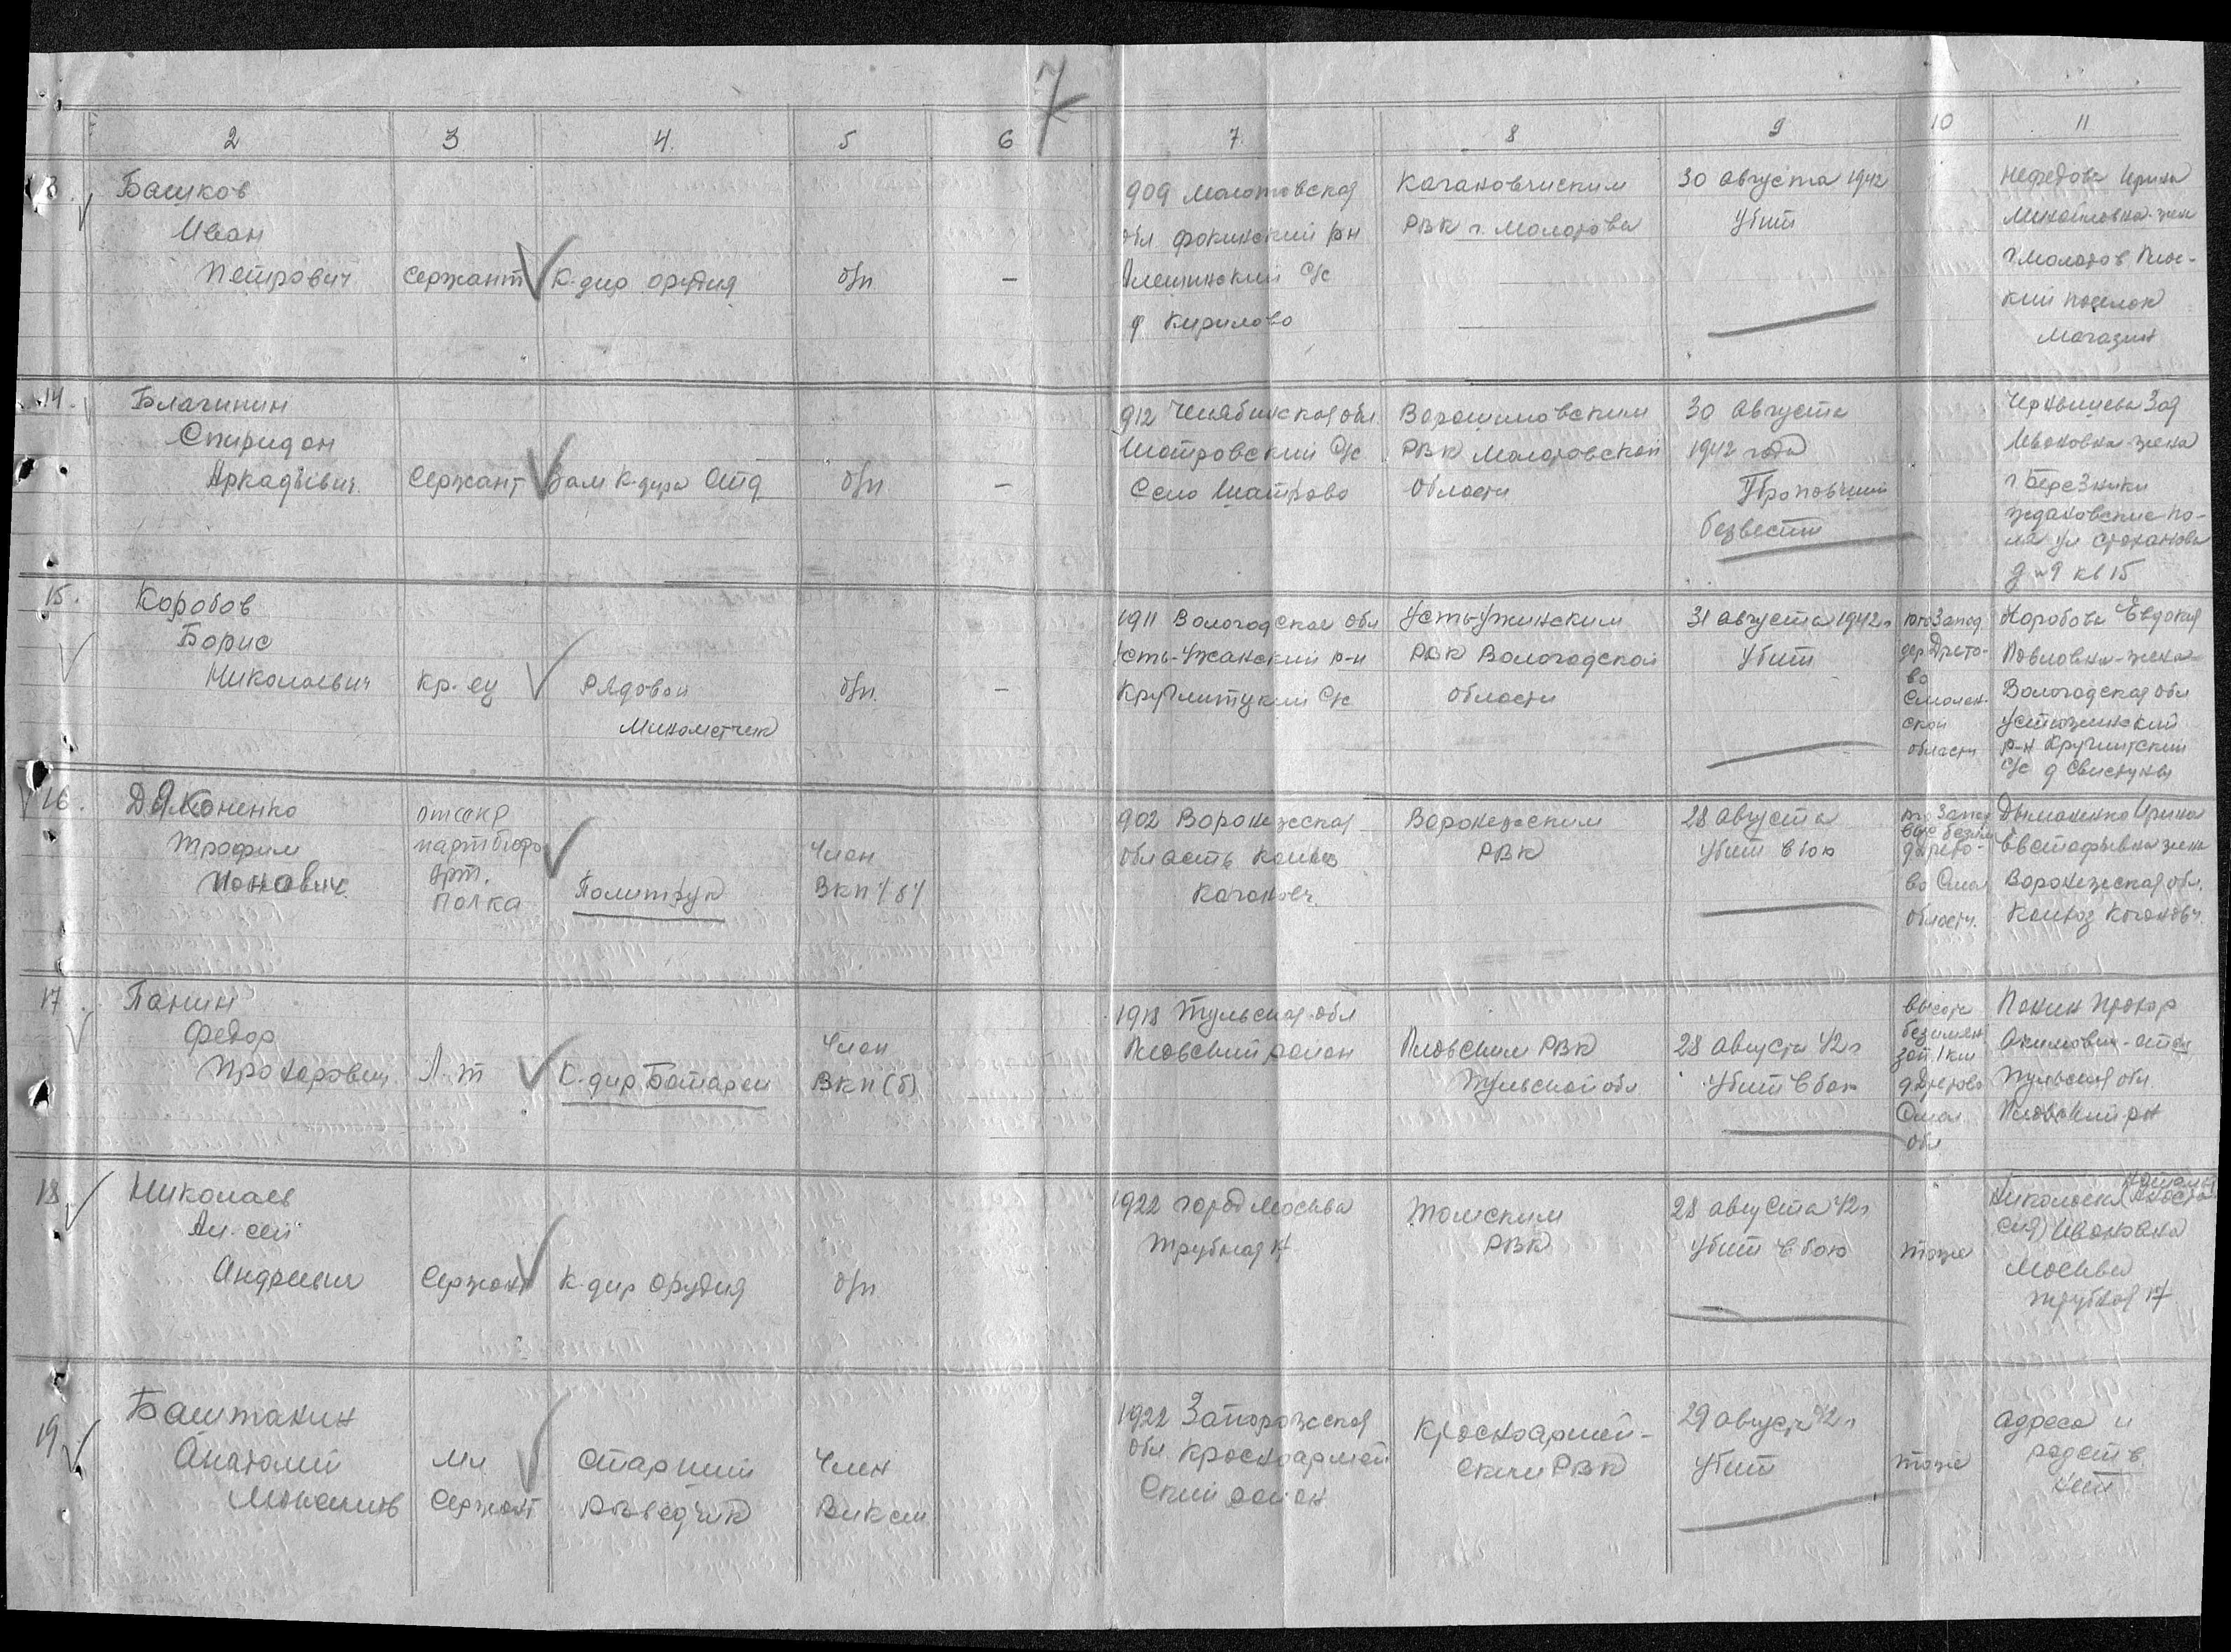 7
2 3 4. 5 6 7. 8 9 10 11
13.
Башков
Иван
Петрович
Сержант
К-дир орудия
б/п
–
909 Молотовская
обл Фокинский р-н
Алешинский С/с
д Кирилово
Кагановичским
РВК г. Молотова
30 августа 1942
Убит
Нефедова Ирина
Михайловна-жена
г Молотов
кий поселок
Магазин
14.
Благинин
Спиридон
Аркадьевич
Сержант
Зам К-дира Отд
б/п
–
912 Челябинская обл
Шатровский С/с
Село Шатрово
Ворошиловским
РВК Молотовской
Области
30 Августа
1942 года
Пропавший
безвести
Зоя
Ивановна-жена
г Березники
ул Стаханова
д 9 кв 15
15.
Коробов
Борис
Николаевич
Кр-ец
Рядовой
Минометчик
б/п.
–
1911 Вологодская обл
Усть-Ужанский р-н
С/с
Усть-Ужинским
РВК Вологодской
области
31 августа 1942 г
Убит
юго Запад
дер Дрето-
во
Смолен-
ской
области
Коробова Евдокия
Павловна-жена
Вологодская обл
Устюжинский
р-н
С/с д Свистуны
16.
ДьяКоненко
Трофим
Ионович
отсекр
партбюро
Арт.
Полка
Политрук
Член
ВКП/б/
902 Воронежская
область
Каганович.
Воронежским
РВК
28 августа
Убит в бою
юго Запад
во Смол
области.
Ирина
Евстафьевна жена
Воронежская обл.
Колхоз Каганович.
17.
Панин
Федор
Прохорович
Л-т
К-дир Батареи
Член
ВКП(б)
1918 Тульская обл
Плавский район
Плавским РВК
Тульской обл
28 августа 42 г
Убит в бою
Высота
безимян
зап. 1 км
д Дретово
Смол
обл
Панин Прохор
Акимович-отец
Тульская обл
Плавский р-н
18
Николаев
Ал-сей
Андреевич
Сержант
К-дир Орудия
б/п
1922 город Москва
Трубная 17
Томским
РВК
28 августа 42 г
Убит в бою
тоже
Николаева
сия) Ивановна
Москва
Трубная 17
19
Баштанин
Анатолий
Мл
Сержант
Старший
Разведчик
Член
ВЛКСМ
1922 Запорожская
обл. Красноармей
Ский район
Красноармей-
Ским РВК
29 августа 42 г
Убит
тоже
Адреса и
родств.
нет.